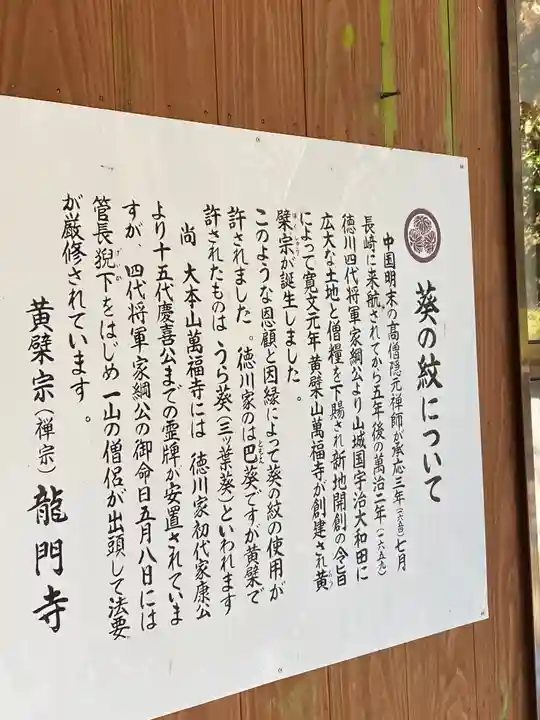 葵の紋について
中国明末の高僧隠元禅師が承応三年(一六五四)七月
長崎に来航されてから五年後の萬治二年(一六五九)
徳川四代将軍家綱公より山城国宇治大和田に
広大な土地と僧糧を下賜され新地開創の令旨
によって寛文元年 黄檗山萬福寺が創建され黄
檗宗が誕生しました。
このような恩顧と因縁によって葵の紋の使用が
許されました。徳川家のは巴葵ですが黄檗で
許されたものは うら葵(三ッ葉葵)といわれます
尚 大本山萬福寺には 徳川家初代家康公
より十五代慶喜公までの霊牌が安置されていま
すが、四代将軍家綱公の御命日五月八日には
管長猊下をはじめ一山の僧侶が出頭して法要
が厳修されています。
黄檗宗(禅宗) 龍門寺